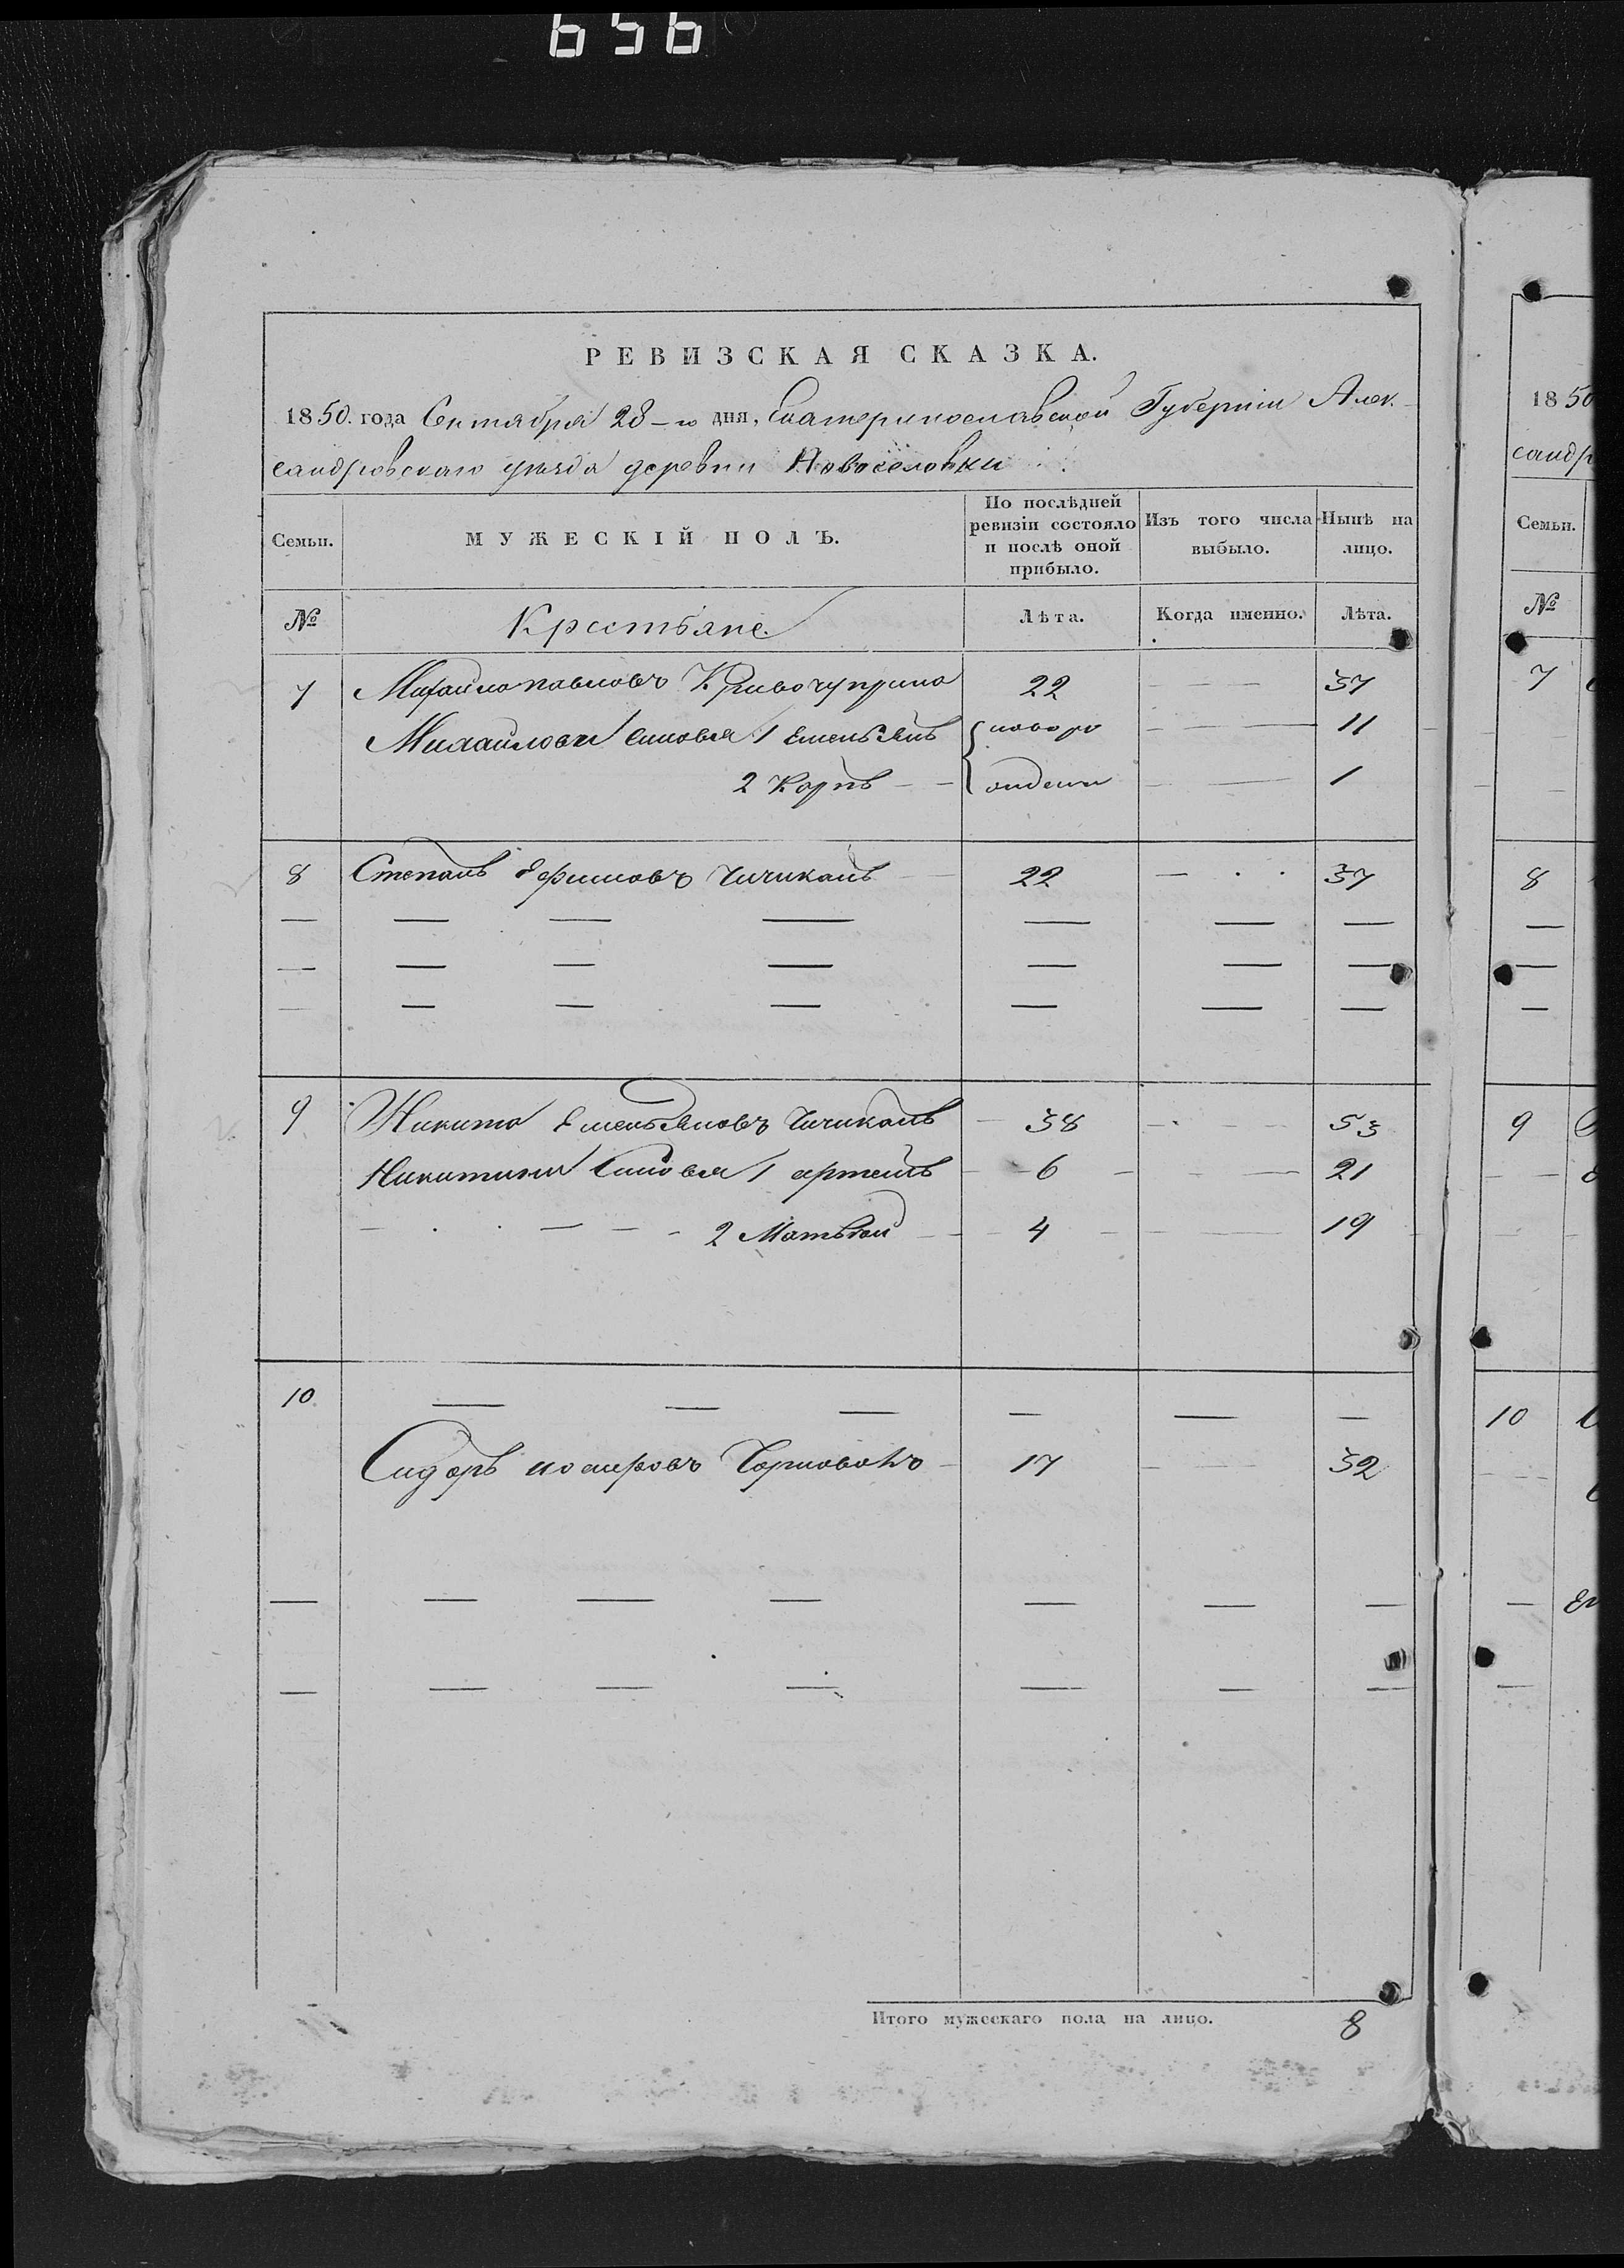 656
РЕВИЗСКАЯ СКАЗКА.
1850. года Сентября 28-го дня, Екатеринославской Губернии Алек-
сандровскаго уезда деревни Новосёловки
Семьи.
МУЖЕСКІЙ ПОЛЪ.
По послѣдней ревизіи состояло и послѣ оной прибыло.
Изъ того числа выбыло.
Нынѣ на лицо.
№ Крестьяне. Лѣта. Когда именно. Лѣта.
7 Михайло павловъ Кривочуприна 22 — — — 37
Михайловы сыновья 1 Емельянъ { новоро — — — 11
2 Карпъ — — { жденны — — 1
8 Степанъ Ефимовъ Чичиканъ — 22 — . . 37
— — — — — — —
— — — — — — —
— — — — — — —
9 Никита Емельяновъ Чичиканъ — 38 — — — 53
Никитины Сыновья 1 артемъ — 6 — — — 21
— . . — — - 2 Матвей — — 4 — — — 19
10 — — — — — —
Сидоръ Чорноволъ — 17 — — 32
— — — — — — —
— — — — — — —
Итого мужескаго пола на лицо. 8
1850
сандр
Семьи.
№
7
8
—
—
—
9
10
—
—